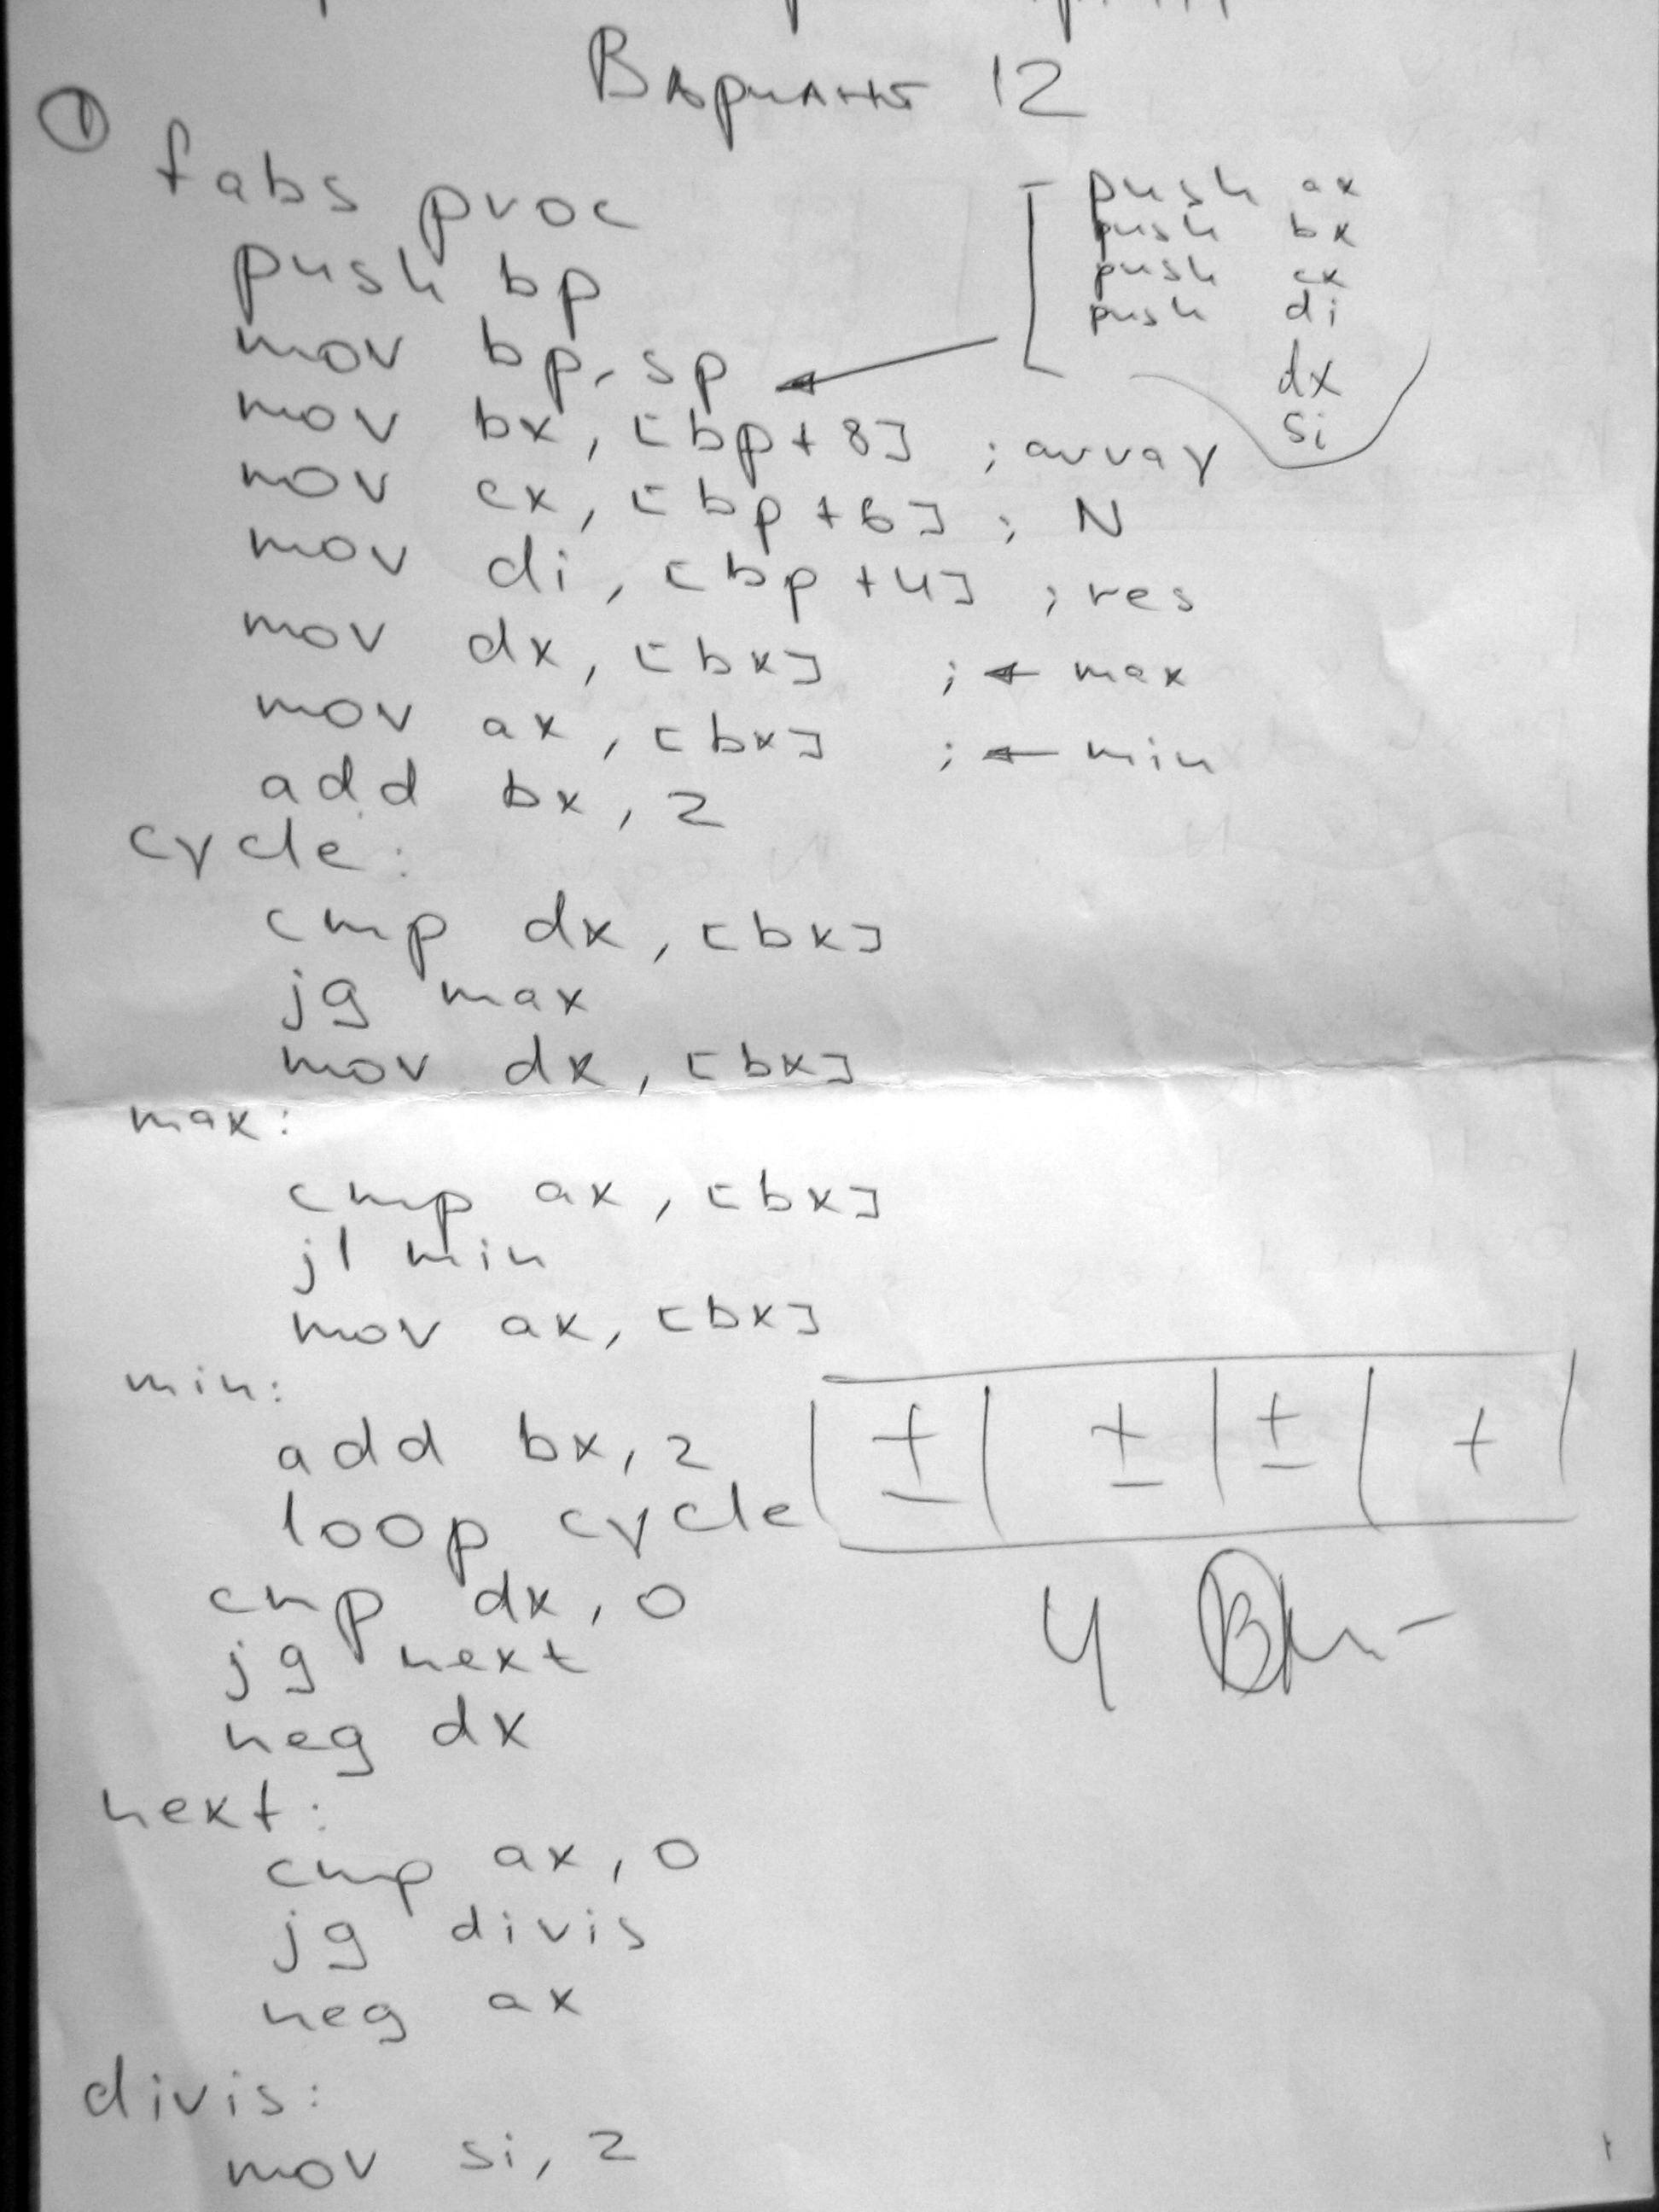 Вариант 12
①
fabs proc
push bp
mov bp, sp
push ax
push bx
push cx
push di
dx
si
mov bx, [bp+8] ; array
mov cx, [bp+6] ; N
mov di, [bp+4] ; res
mov dx, [bx] ; ← max
mov ax, [bx] ; ← min
add bx, 2
cycle:
cmp dx, [bx]
jg max
mov dx, [bx]
max:
cmp ax, [bx]
jl min
mov ax, [bx]
min:
add bx, 2
loop cycle
| ± | ± | ± | + |
4
cmp dx, 0
jg next
neg dx
next:
cmp ax, 0
jg divis
neg ax
divis:
mov si, 2